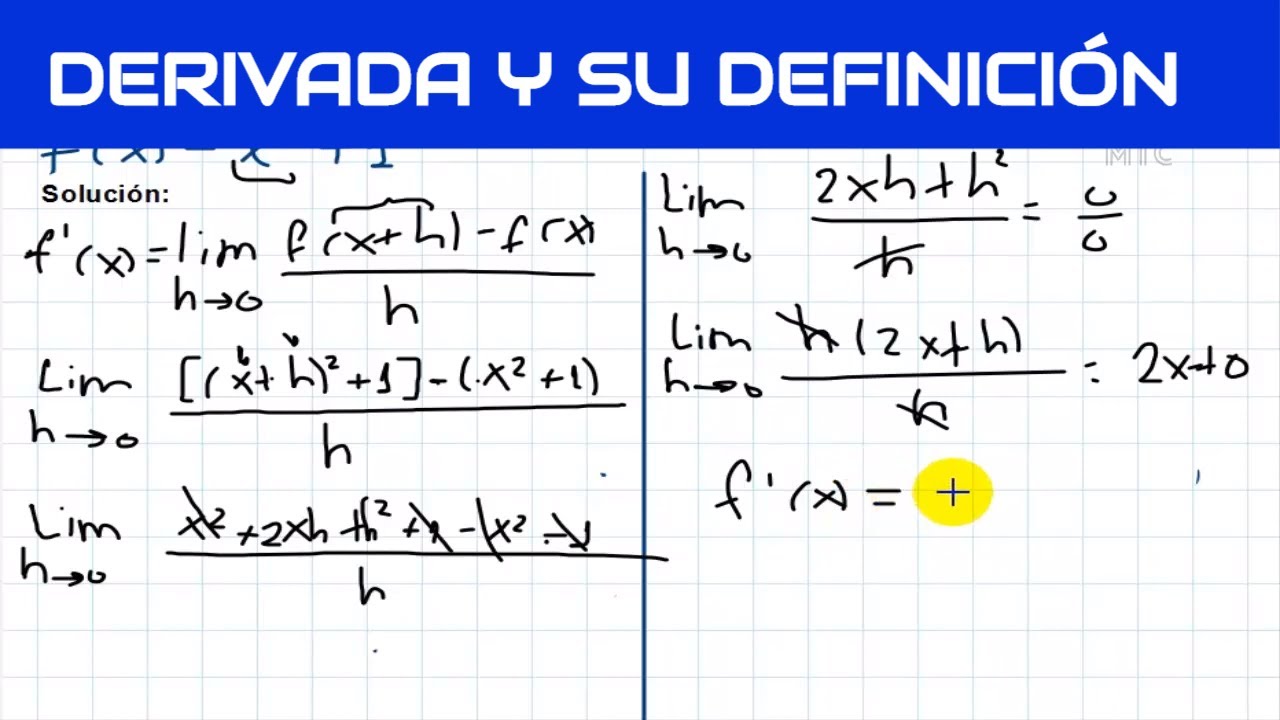 DERIVADA Y SU DEFINICIÓN
f(x) = x² + 1
Solución:
f'(x) = lim h→0 f(x+h) - f(x) / h
Lim h→0 [(x+h)² + 1] - (x² + 1) / h
Lim h→0 x² + 2xh + h² + 1 - x² - 1 / h
MTC
Lim h→0 2xh + h² / h = 0/0
Lim h→0 h(2x+h) / h = 2x+0
f'(x) =